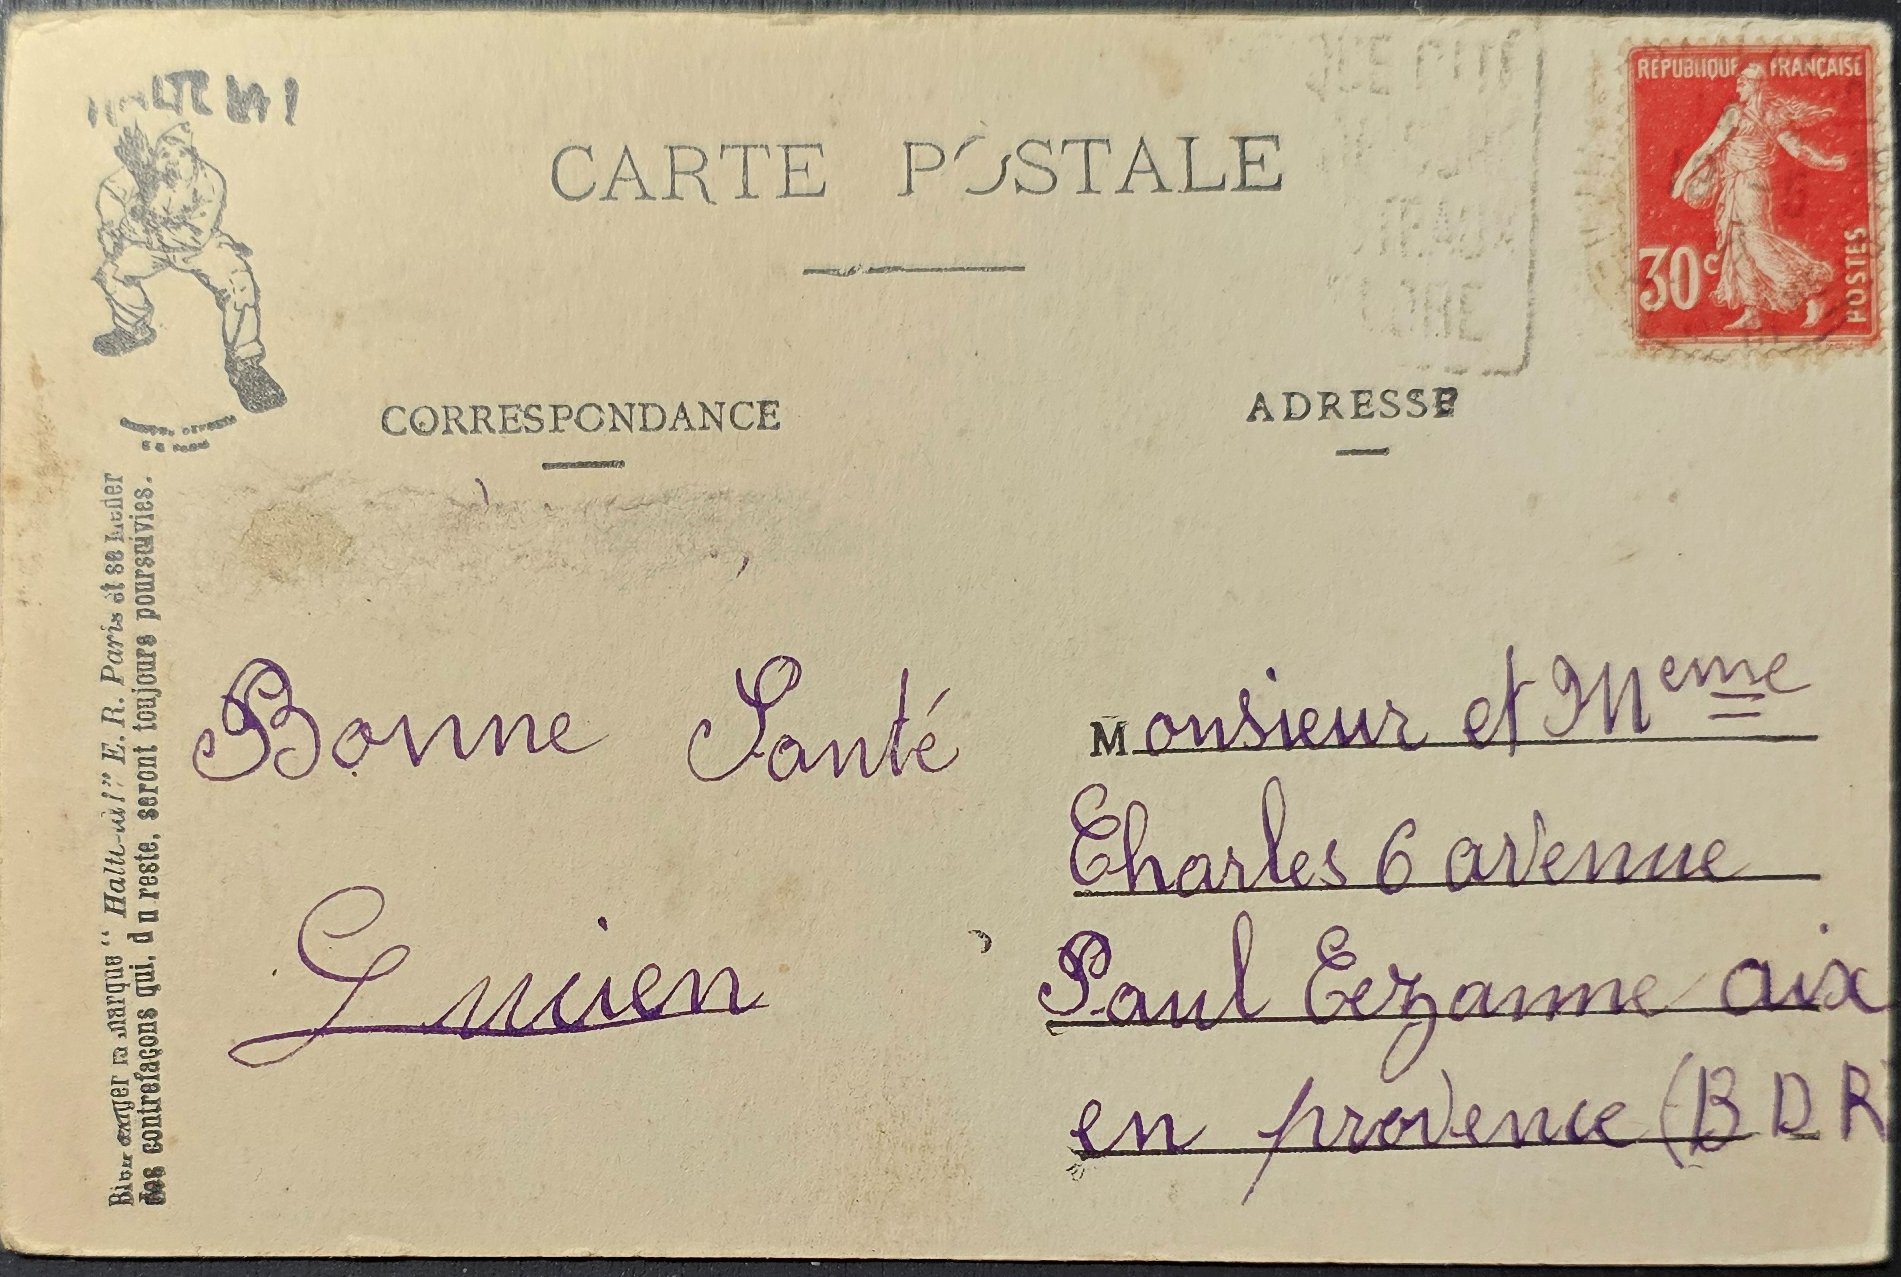 CARTE POSTALE
RÉPUBLIQUE FRANÇAISE
30c
POSTES
CORRESPONDANCE
ADRESSE
Bien exiger la marque "Halte-là!" E. R. Paris et se méfier
des contrefaçons qui, du reste, seront toujours poursuivies.
Bonne Santé
Lucien
Monsieur et Meme
Charles 6 avenue
Paul Cezanne aix
en provence (B D R